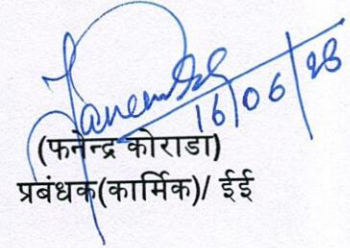 16/06/28
(फनेन्द्र कोराडा)
प्रबंधक(कार्मिक)/ ईई